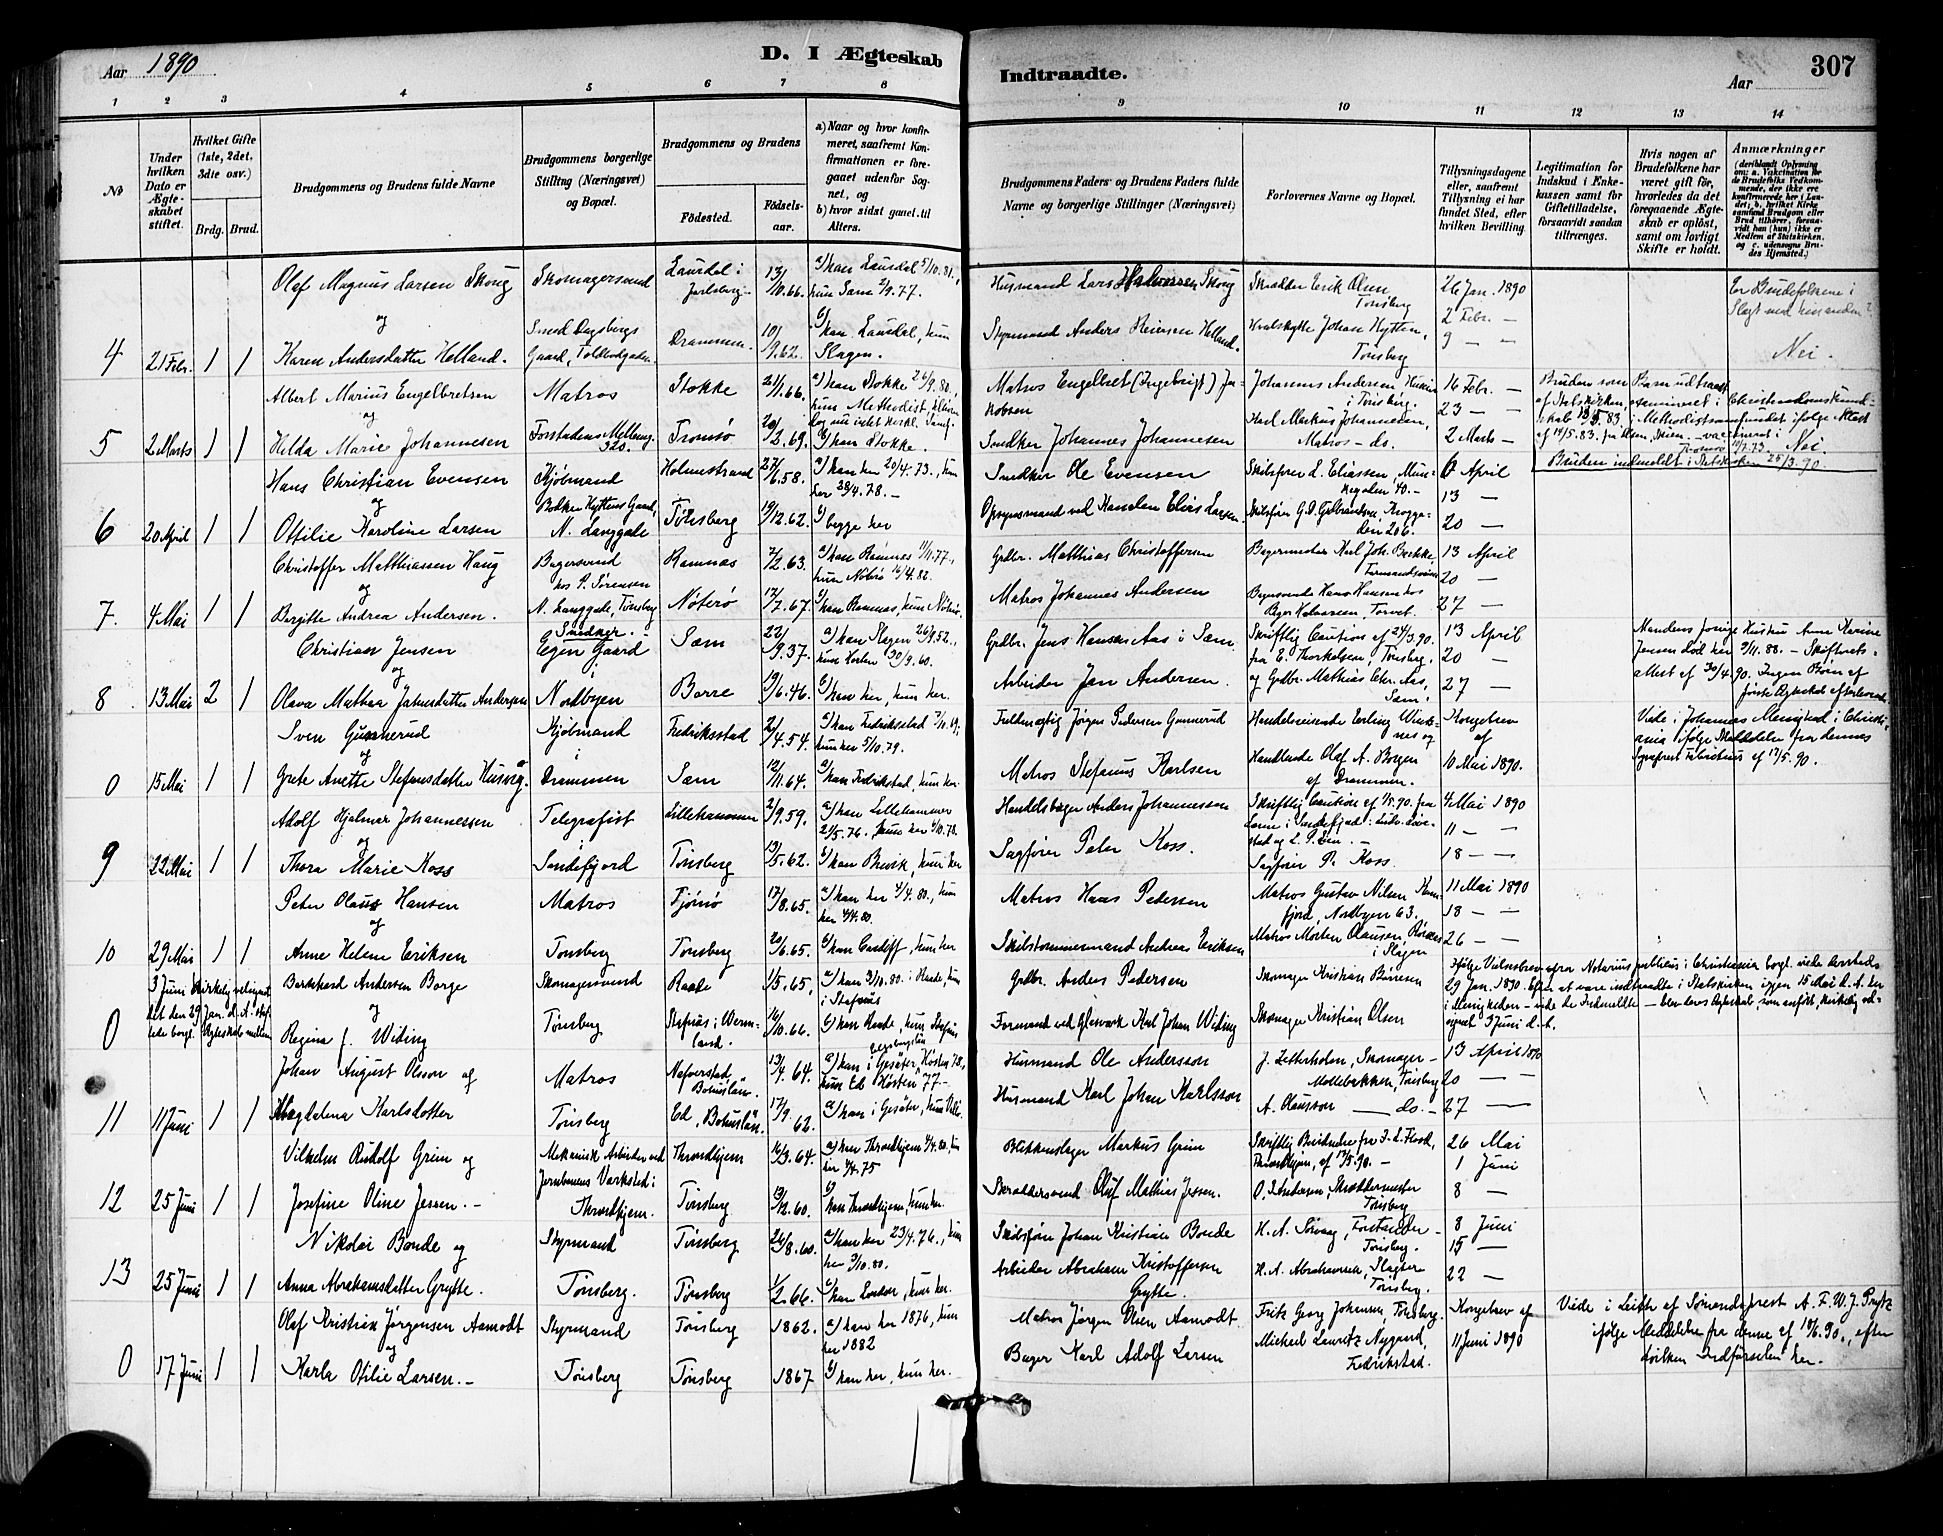 Aar 1890
D. I Ægteskab
Indtraadte.
Aar
307
1 2 3 4 5 6 7 8 9 10 11 12 13 14
No
Under hvilken Dato er Ægteskabet stiftet.
Hvilket Gifte (1ste, 2det, 3die osv.)
Brdg. Brud.
Brudgommens og Brudens fulde Navne
Brudgommens borgerlige Stilling (Næringsvei) og Bopæl.
Brudgommens og Brudens
Fødested.
Fødselsaar.
a) Naar og hvor konfirmeret, saafremt Konfirmationen er foregaaet udenfor Sognet, og
b) hvor sidst gaaet til Alters.
Brudgommens Faders og Brudens Faders fulde Navne og borgerlige Stillinger (Næringsvei)
Forlovernes Navne og Bopæl.
Tillysningsdagene eller, saafremt Tillysning ei har fundet Sted, efter hvilken Bevilling.
Legitimation for Indskud i Ænkekassen samt for Giftetilladelse, forsaavidt saadan tiltrænges.
Hvis nogen af Brudefolkene har været gift før, hvorledes da det foregaaende Ægteskab er opløst, samt om lovligt Skifte er holdt.
Anmærkninger
Olaf Magnus Larsen Skoug Skomagersvend Laurdal i Jarlsberg 13/10.66. a) han Laurdal 5/10.81, hun Sæm 2/9.77. Husmand Lars Halvorsen Skoug Skrædder Erik Olsen Tønsberg 26 Jan. 1890
Er Brudefolkene i Slægt med hinanden? Nei.
4 21 Febr. 1 1 og Karen Andersdatter Helland. Gaard, Toldbodgaden Drammen. 10/9.62. b) han Laurdal, hun Slagen. Styrmand Anders Helland. Hvalskytte Johan Hytten, Tønsberg 2 Febr. — 9 — —
Albert Marius Engelbretsen Matros Stokke 21/1.66. a) han Stokke 26/9.80, Matros Engelbret (Ingebrigt) Jakobsen Johannes Andersen i Tønsberg. 16 Febr. — 23 — —
5 2 Marts 1 1 og Helda Marie Johannesen Tromsø 20/2.69. b) han Stokke. Snedker Johannes Johannesen Karl Markus Johannesen, Matros — ds. 2 Marts —
Bruden indmeldt i Statskirken 25/3.90
Hans Christian Evensen Kjøbmand Holmestrand 27/6.58. a) han her 20/4.73, hun her 28/4.78.— Snedker Ole Evensen Skibsfører L. Eliassen, Munkegaden 40.— 6 April 13 —
6 20 April 1 1 og Otilie Karoline Larsen N. Langgade Tønsberg 19/12.62. b) begge her Opsynsmand ved Kanalen Elias Larsen 20 —
Christoffer Matthiassen Haug Bagersvend hos P. Sørensen Ramnæs 2/2.63. a) han Ramnæs 11/11.77., hun Nøtterø 16/4.82. Grdbr. Matthias Christoffersen Bagermester Karl Joh. Brekke, 13 April 20 —
7. 4 Mai 1 1 og Birgitte Andrea Andersen. N. Langgade, Tønsberg Nøterø 12/7.67. b) han Ramnæs, hun Nøterø. Matros Johannes Andersen Bagersvend Hans Hansen hos Bager Halvorsen, Torvet. 27 —
Christian Jensen Snedker. Egen Gaard i Sæm 22/9.37. a) han Slagen 26/9.52., hun Horten 30/9.60. Grdbr. Jens Hansen Aas i Sæm Skriftlig Caution af 24/3.90. fra E. Thorkelsen, Tønsberg. 13 April 20 —
Mandens forrige Hustru Anne Marine Jensen død her 9/11.88. — Skifteretsattest af 30/4.90. Ingen Børn af første Ægteskab efterlevende
8 13 Mai 2 1 og Olava Mathea Johnsdatter Andersen Nordbyen Borre 19/6.46. b) han her, hun her. Arbeider Jan Andersen. og Grdbr. Mathias Chr. Aas, Sæm. 27 —
Sven Gunnerud Kjøbmand i Fredriksstad 21/4.54. a) han Fredriksstad 3/10.69, hun her 5/10.79. Fuldmægtig Jørgen Pedersen Gunnerud Handelsreisende Erling og Kongebrev af
Viede i Johannes Menighed i Christiania ifølge Meddelelse fra dennes Sognepræst af 17/5.90.
0 15 Mai 1 1 og Grete Anette Stefansdatter Husvig Drammen Sæm 12/11.64. b) han Fredrikstad, hun her. Matros Stefanus Karlsen Handlende Olaf A. Borgen af Drammen. 10 Mai 1890.
Adolf Hjalmar Johannessen Telegrafist Lillehammer 2/9.59. a) han Lillehammer 21/5.76, hun her 6/10.78. Handelsbager Anders Johannessen Skriftlig Caution af 1/5.90. fra 4 Mai 1890 11 — —
9 22 Mai 1 1 og Thora Marie Koss Sandefjord Tønsberg 13/5.62. b) han Brevik, hun her Sagfører Peter Koss. Sagfører P. Koss. 18 — —
Peter Olaus Hansen Matros Tjømø 17/8.65. a) han her 4/4.80., hun her 4/4.80. Matros Hans Pedersen Matros Gustav Nilsen fjord, Nordbyen 63. 11 Mai 1890 18 — —
10 29 Mai 1 1 og Anne Helene Eriksen Tønsberg Tønsberg 20/6.65. b) han Cardiff, hun her Skibstømmermand Andreas Eriksen Matros Morten Olausen i Slagen 26 — —
3 Juni kirkelig velsignet det den 29 Jan. d.A. stiftede borgl. Ægteskab mellem
Andersen Borge Skomagersvend Raade 1/5.65, a) han 3/10.80. i Raade, hun i Stafnæs Grdbr. Anders Pedersen Skomager Kristian Ifølge Vielsesbrev fra Notarius publicus i Christiania borgl. viede
29 Jan. 1890. Efter at være indtraadte i Statskirken igjen 15 Mai d.A. her i Menigheden — vide de Indmeldte — blev deres Ægteskab, som anført, kirkelig velsignet 3 Juni d.A.
0 1 1 og Regina f. Widing Tønsberg Stafnæs i Wermland. 16/10.66. b) han Raade, hun Stafnæs Formand ved Glasværk Karl Johan Widing Skomager Kristian Olsen
Johan August Olsson og Matros Naverstad Bohuslän. 13/4.64. a) han i Gesäter, Hösten 78, hun Ed Hösten 77.— Husmand Ole Andersson J. Zetterholm, Skomager — Møllebakken, Tønsberg 13 April 1890 20 — —
11 11 Juni 1 1 Magdalena Karlsdotter Tønsberg Ed, Bohuslän. 17/9.62. b) han i Gesäter, hun Husmand Karl Johan Karlsson. A. Olausson — ds. — 27 —
Vilhelm Rudolf Grim og Mekanisk Arbeider ved Jernbanens Værksted i Throndhjem 16/3.64. a) han Throndhjem 4/4.80, hun her 4/4.75 Blikkenslager Markus Grim Throndhjem, af 17/5.90. — 26 Mai 1 Juni
12 25 Juni 1 1 Josefine Oline Jessen. — Throndhjem. Tønsberg 13/12.60. b) han Throndhjem, hun her. Skræddersvend Oluf Mathias Jessen. O. J. Andersen, Skræddermester Tønsberg 8 —
Nikolai Bonde og Styrmand Tønsberg 26/8.60. a) han her 23/4.76, hun her 3/10.80. Skibsfører Johan Kristian Bonde H. A. Sørvaag, Forstander — Tønsberg. 8 Juni 15 —
13 25 Juni 1 1 Anna Abrahamsdatter Grytte. Tønsberg. Tønsberg 1/2.66. b) han London, hun her. Arbeider Abraham Kristoffersen Grytte. H. A. Abrahamsen, Slagter Tønsberg. 22 —
Olaf Kristian Jørgensen Aamodt Styrmand Tønsberg 1862. a) han her 1876, hun her 1882 Matros Jørgen Olsen Aamodt Fritz Georg Johansen, Tønsberg. Kongebrev af
Viede i Leith af Sømandsprest A. F. W. J. Prytz ifølge Meddelelse fra denne af 18/6.90., efter hvilken Indførselen her.
0 17 Juni 1 1 og Karla Otilie Larsen. — Tønsberg Tønsberg 1867 b) han her, hun her. Bager Karl Adolf Larsen Michael Lauritz Nygaard, Fredrikstad. 11 Juni 1890